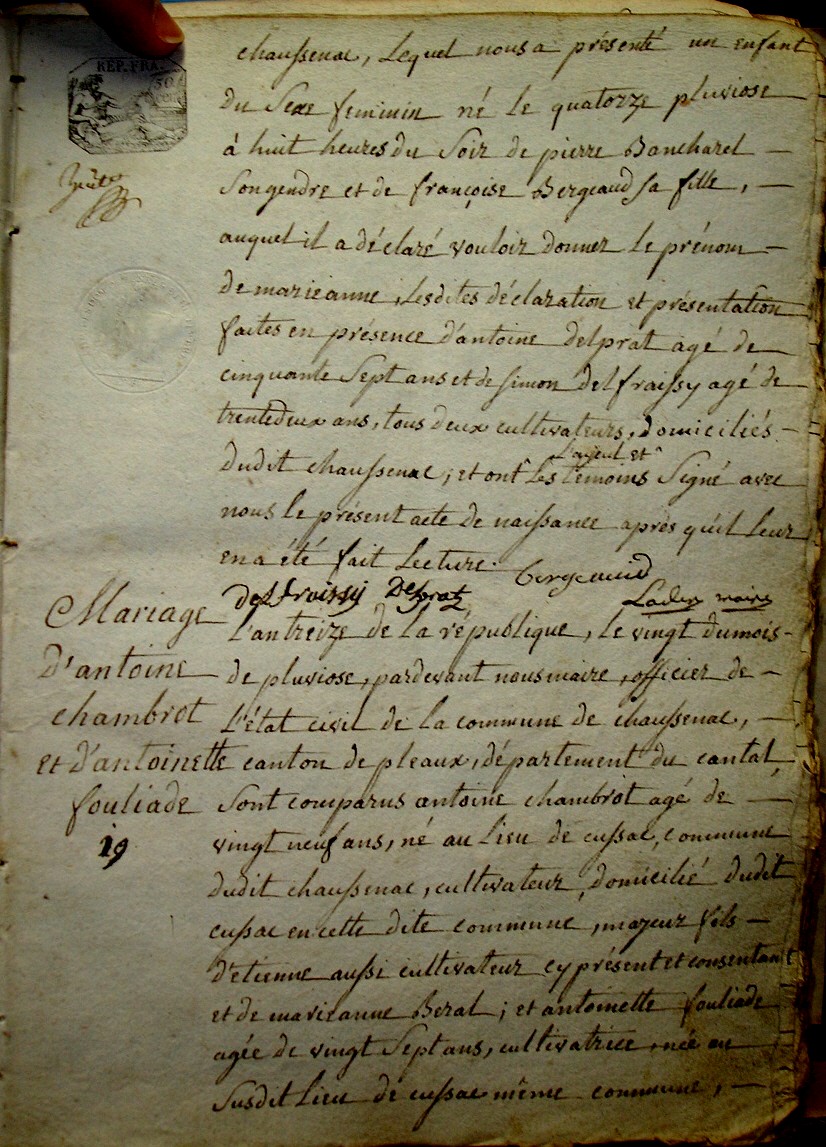 REP. FRA.
chaussenac, Lequel nous a présenté un enfant
du Sexe feminin né le quatorze pluviose
á huit heures du Soir de pierre Bancharel
Son gendre et de françoise Bergeaud sa fille,
auquel il a déclaré vouloir donner le prénom
de marieanne, Lesdites déclaration et présentation
faites en présence d'antoine delprat agé de
cinquante Sept ans et de Simon delfraissy agé de
trentedeux ans, tous deux cultivateurs, domiciliés
dudit chaussenac; et ont L'ayeul et Les témoins Signé avec
nous le présent acte de naissance après qu'il leur
en a été fait Lecture. Bergeaud
delfraissy Delprat Laden maire
Mariage
D'antoine
chambrot
et D'antoinette
fouliade
19
L'an treize de la république, le vingt du mois
de pluviose, pardevant nous maire, officier de
L'état civil de la commune de chaussenac,
canton de pleaux, département du cantal,
Sont comparus antoine chambrot agé de
vingt neuf ans, né au Lieu de cussac, commune
dudit chaussenac, cultivateur, domicilié dudit
cussac en cette dite commune, majeur fils
d'etienne aussi cultivateur cy présent et consentant
et de marieanne Beral; et antoinette fouliade
agée de vingt Sept ans, cultivatrice, née au
Susdit Lieu de cussac même commune,